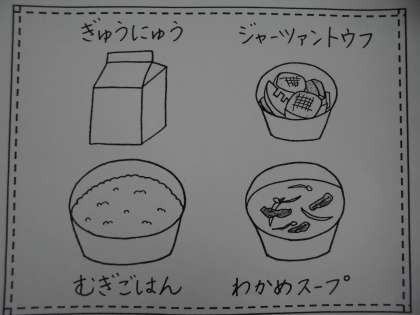 ぎゅうにゅう
ジャーツァントウフ
むぎごはん
わかめスープ